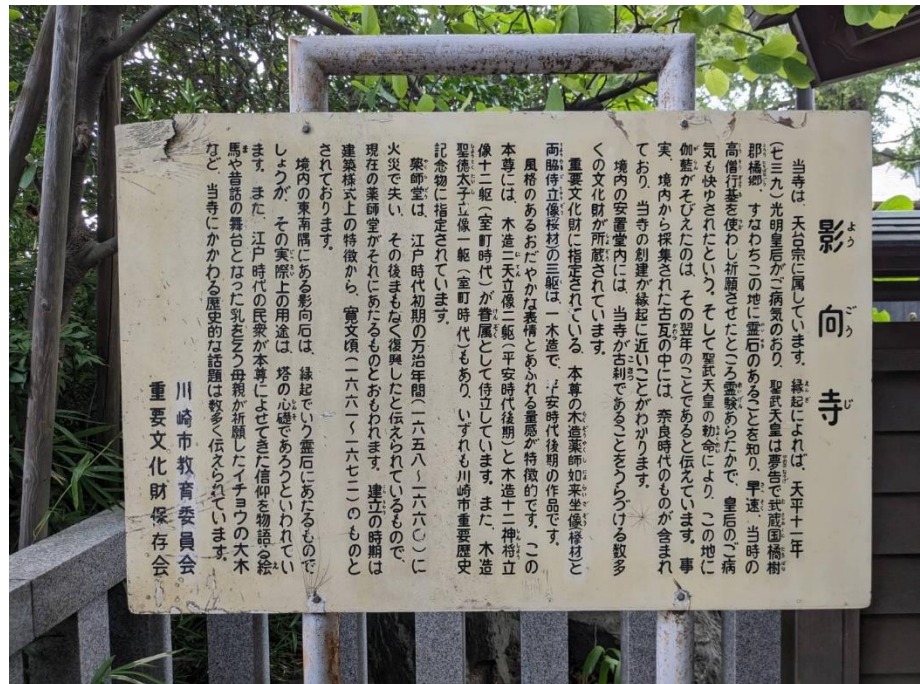 影向寺
当寺は、天台宗に属しています。縁起によれば、天平十一年
(七三九)光明皇后がご病気のおり、聖武天皇は夢告で武蔵国橘樹
郡橘郷、すなわちこの地に霊石のあることを知り、早速、当時の
高僧行基を使わし祈願させたところ霊験あらたかで、皇后のご病
気も快ゆされたという。そして聖武天皇の勅命により、この地に
伽藍がそびえたのは、その翌年のことであると伝えています。事
実、境内から採集された古瓦の中には、奈良時代のものが含まれ
ており、当寺の創建が縁起に近いことがわかります。
境内の安置堂内には、当寺が古刹であることをうらづける数多
くの文化財が所蔵されています。
重要文化財に指定されている、本尊の木造薬師如来坐像(欅材)と
両脇侍立像(桜材)の三躯は、一木造で、平安時代後期の作品です。
風格のあるおだやかな表情とあふれる量感が特徴的です。この
本尊には、木造二天立像二躯(平安時代後期)と木造十二神将立
像十二躯(室町時代)が眷属として侍立しています。また、木造
聖徳太子立像一躯(室町時代)もあり、いずれも川崎市重要歴史
記念物に指定されています。
薬師堂は、江戸時代初期の万治年間(一六五八〜一六六〇)に
火災で失い、その後まもなく復興したと伝えられているもので、
現在の薬師堂がそれにあたるものとおもわれます。建立の時期は
建築様式上の特徴から、寛文頃(一六六一〜一六七二)のものと
されております。
境内の東南隅にある影向石は、縁起でいう霊石にあたるもので
しょうが、その実際上の用途は、塔の心礎であろうといわれてい
ます。また、江戸時代の民衆が本尊によせてきた信仰を物語る絵
馬や昔話の舞台となった乳を乞う母親が祈願したイチョウの大木
など、当寺にかかわる歴史的な話題は数多く伝えられています。
川崎市教育委員会
重要文化財保存会